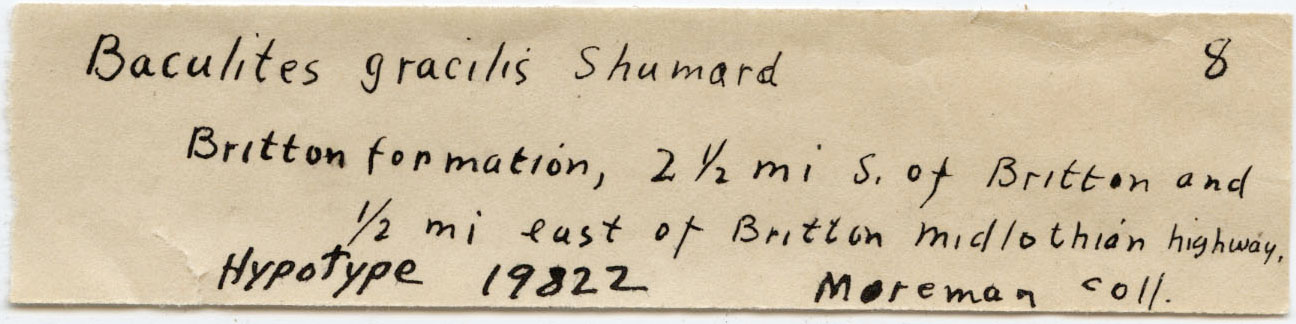 Baculites gracilis Shumard 8
Britton formation, 2 1/2 mi S. of Britton and
1/2 mi east of Britton midlothian highway.
Hypotype 19822 Moreman coll.